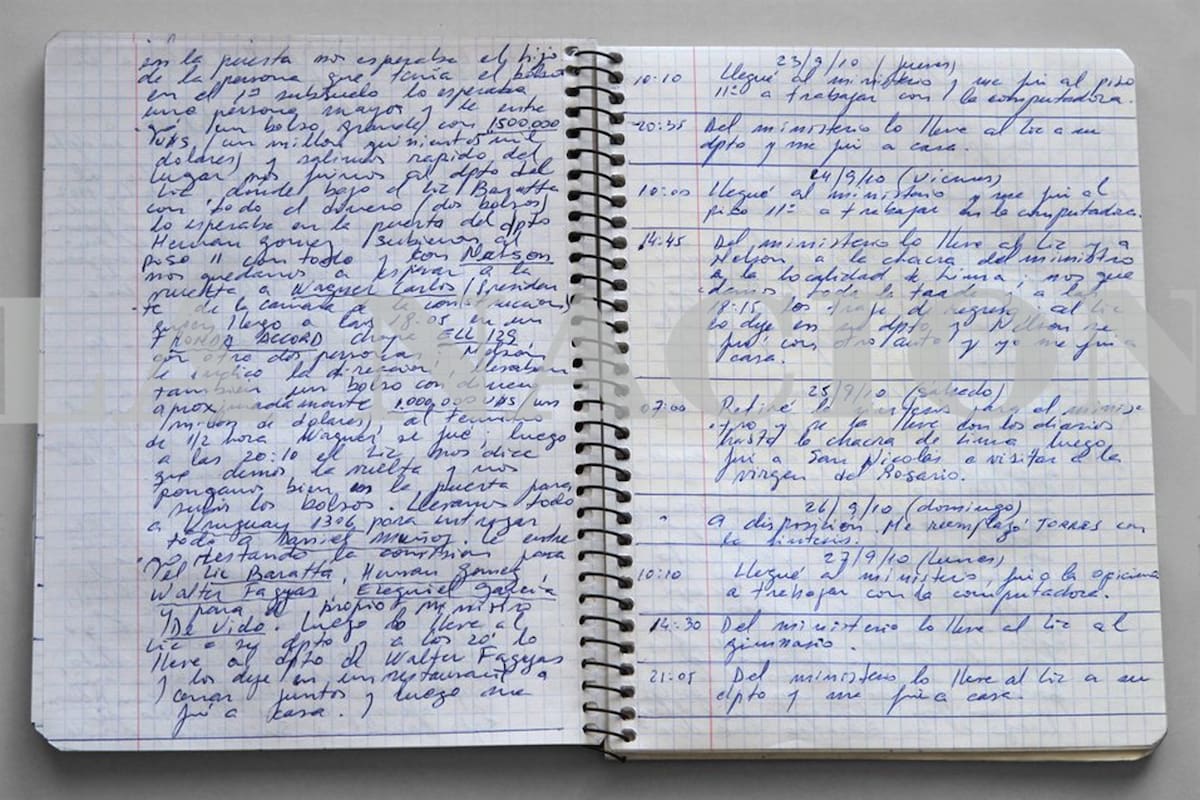 en la puesta nos esperaba el hijo
de la persona que tenía el bolso
en el 1º subsuelo lo esperaba
una persona mayor y le entre
gó (un bolso grande) con 1500,000
U$S, (un millón quinientos mil
dolares) y salimos rapido del
lugar, nos fuimos al dpto del
Lic donde bajo el Lic Baratta
con todo el dinero (dos bolsos)
lo esperaba en la puerta del dpto
Hernan Gomez, subieron al
piso 11 con todo y con Nelson
nos quedamos a esperar a la
vuelta a Wagner Carlos (Presiden
te de la camara de la construccion)
quien llego a las 18:05 en un
HONDA ACCORD chapa GLL 129
con otro dos personas; Nelson
le indico la direccion, llevaban
tambien un bolso con dinero
aproximadamente 1.000,000 U$S un
(millon de dolares), al termino
de 1/2 hora Wagner se fue; luego
a las 20:10 el Lic nos dice
que demos la vuelta y nos
pongamos bien en la puerta para
subir los bolsos. Llevamos todo
a Uruguay 1306 para entregar
todo a Daniel Muñoz. Le entre
gó restando la comision para
el Lic Baratta, Hernan Gomez
Walter Fagyas, Ezequiel Garcia
y para el propio ministro
De Vido. Luego lo lleve al
Lic a su dpto y a los 20' lo
lleve al dpto de Walter Fagyas
y los deje en un restaurant a
cenar juntos y luego me
fui a casa.
23/9/10 (jueves)
10:10 Llegué al ministerio y me fui al piso
11º a trabajar con la computadora.
20:35 Del ministerio lo lleve al Lic a su
dpto y me fui a casa.
24/9/10 (viernes)
10:05 Llegué al ministerio y me fui al
piso 11º a trabajar en la computadora.
14:45 Del ministerio lo lleve al Lic y a
Nelson a la chacra del ministro
a la localidad de Lima; nos que
damos toda la tarde; a las
18:15 los traje de regreso, al Lic
lo deje en su dpto, y Nelson se
fué con otro auto y yo me fui a
casa.
25/9/10 (sabado)
07:00 Retiré la sintesis para el minis
tro y se la lleve con los diarios
hasta la chacra de Lima luego
fui a San Nicolas a visitar a la
virgen de Rosario.
26/9/10 (domingo)
A disposicion. Me reemplazó TORRES con
la sintesis.
27/9/10 (lunes)
10:10 Llegué al ministerio, fui a la oficina
a trabajar con la computadora.
14:30 Del ministerio lo lleve al Lic al
gimnasio.
21:05 Del ministerio lo lleve al Lic a su
dpto y me fui a casa.
LA NACION